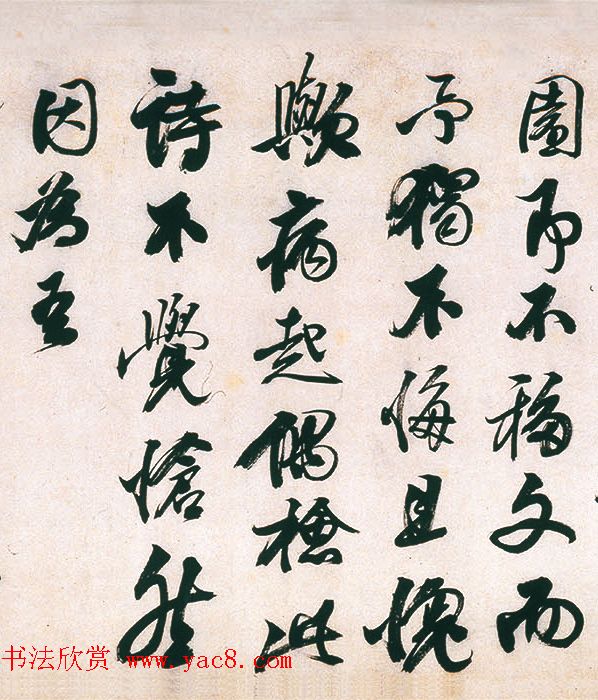 圖即不稱文而
予獨不悔且愧
歟病起偶檢此
詩不覺愴然
因為五
书法欣赏 www.yac8.com